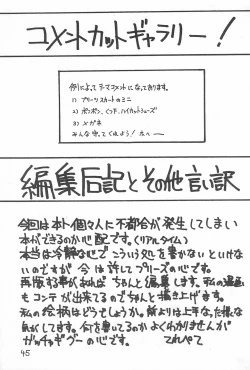 コメントカットギャラリー！
例によってテーマコメントになっております。
1) プリーツスカートのミニ
2) ボンボン、くつ下、ハイカットシューズ
3) メガネ
みんな守ってくれよう！たのへ〜
編集后記とその他言い訳
今回は本ト個々人に不都合が発生してしまい
本ができるのか心配です。(リアルタイム)
本当は冷静な心でこういうのを書かないといけな
いのですが今は許してプリーズの心です。
再販する事があればちゃんと編集します。私の漫画
もコンテが出来てるのでちゃんと描き上げます。
私の絵柄はどうでしょうか。前よりは上手な、た様な
気がしてます。何を書いてるのかよくわかりませんが
ガッチャボグーの心です。
てれぺて
45